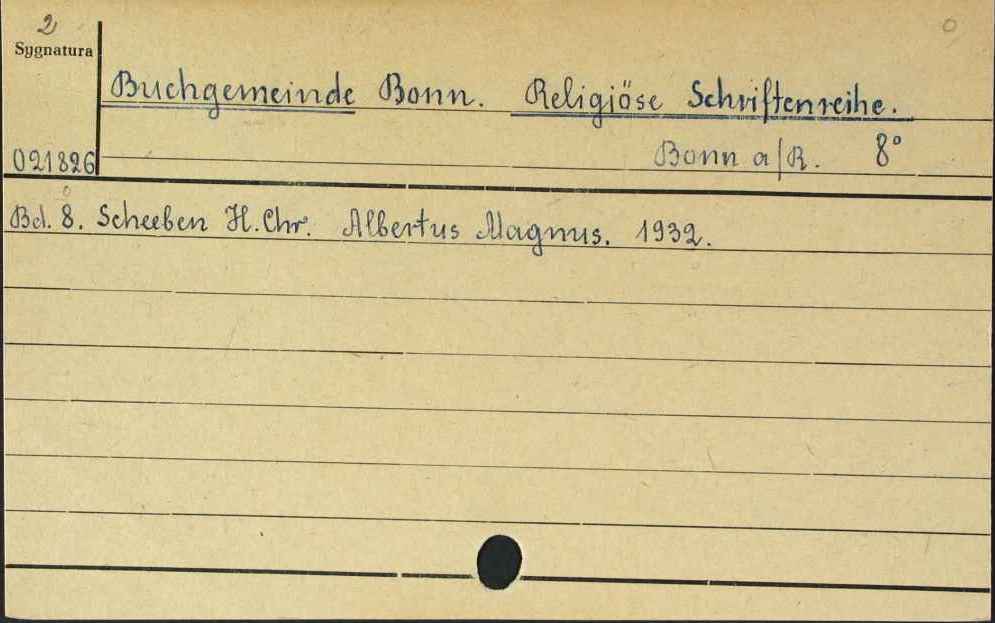 2
Sygnatura
Buchgemeinde Bonn. Religiöse Schriftenreihe.
021826
Bonn a/R. 8°
Bd. 8. Scheeben H. Chr. Albertus Magnus. 1932.